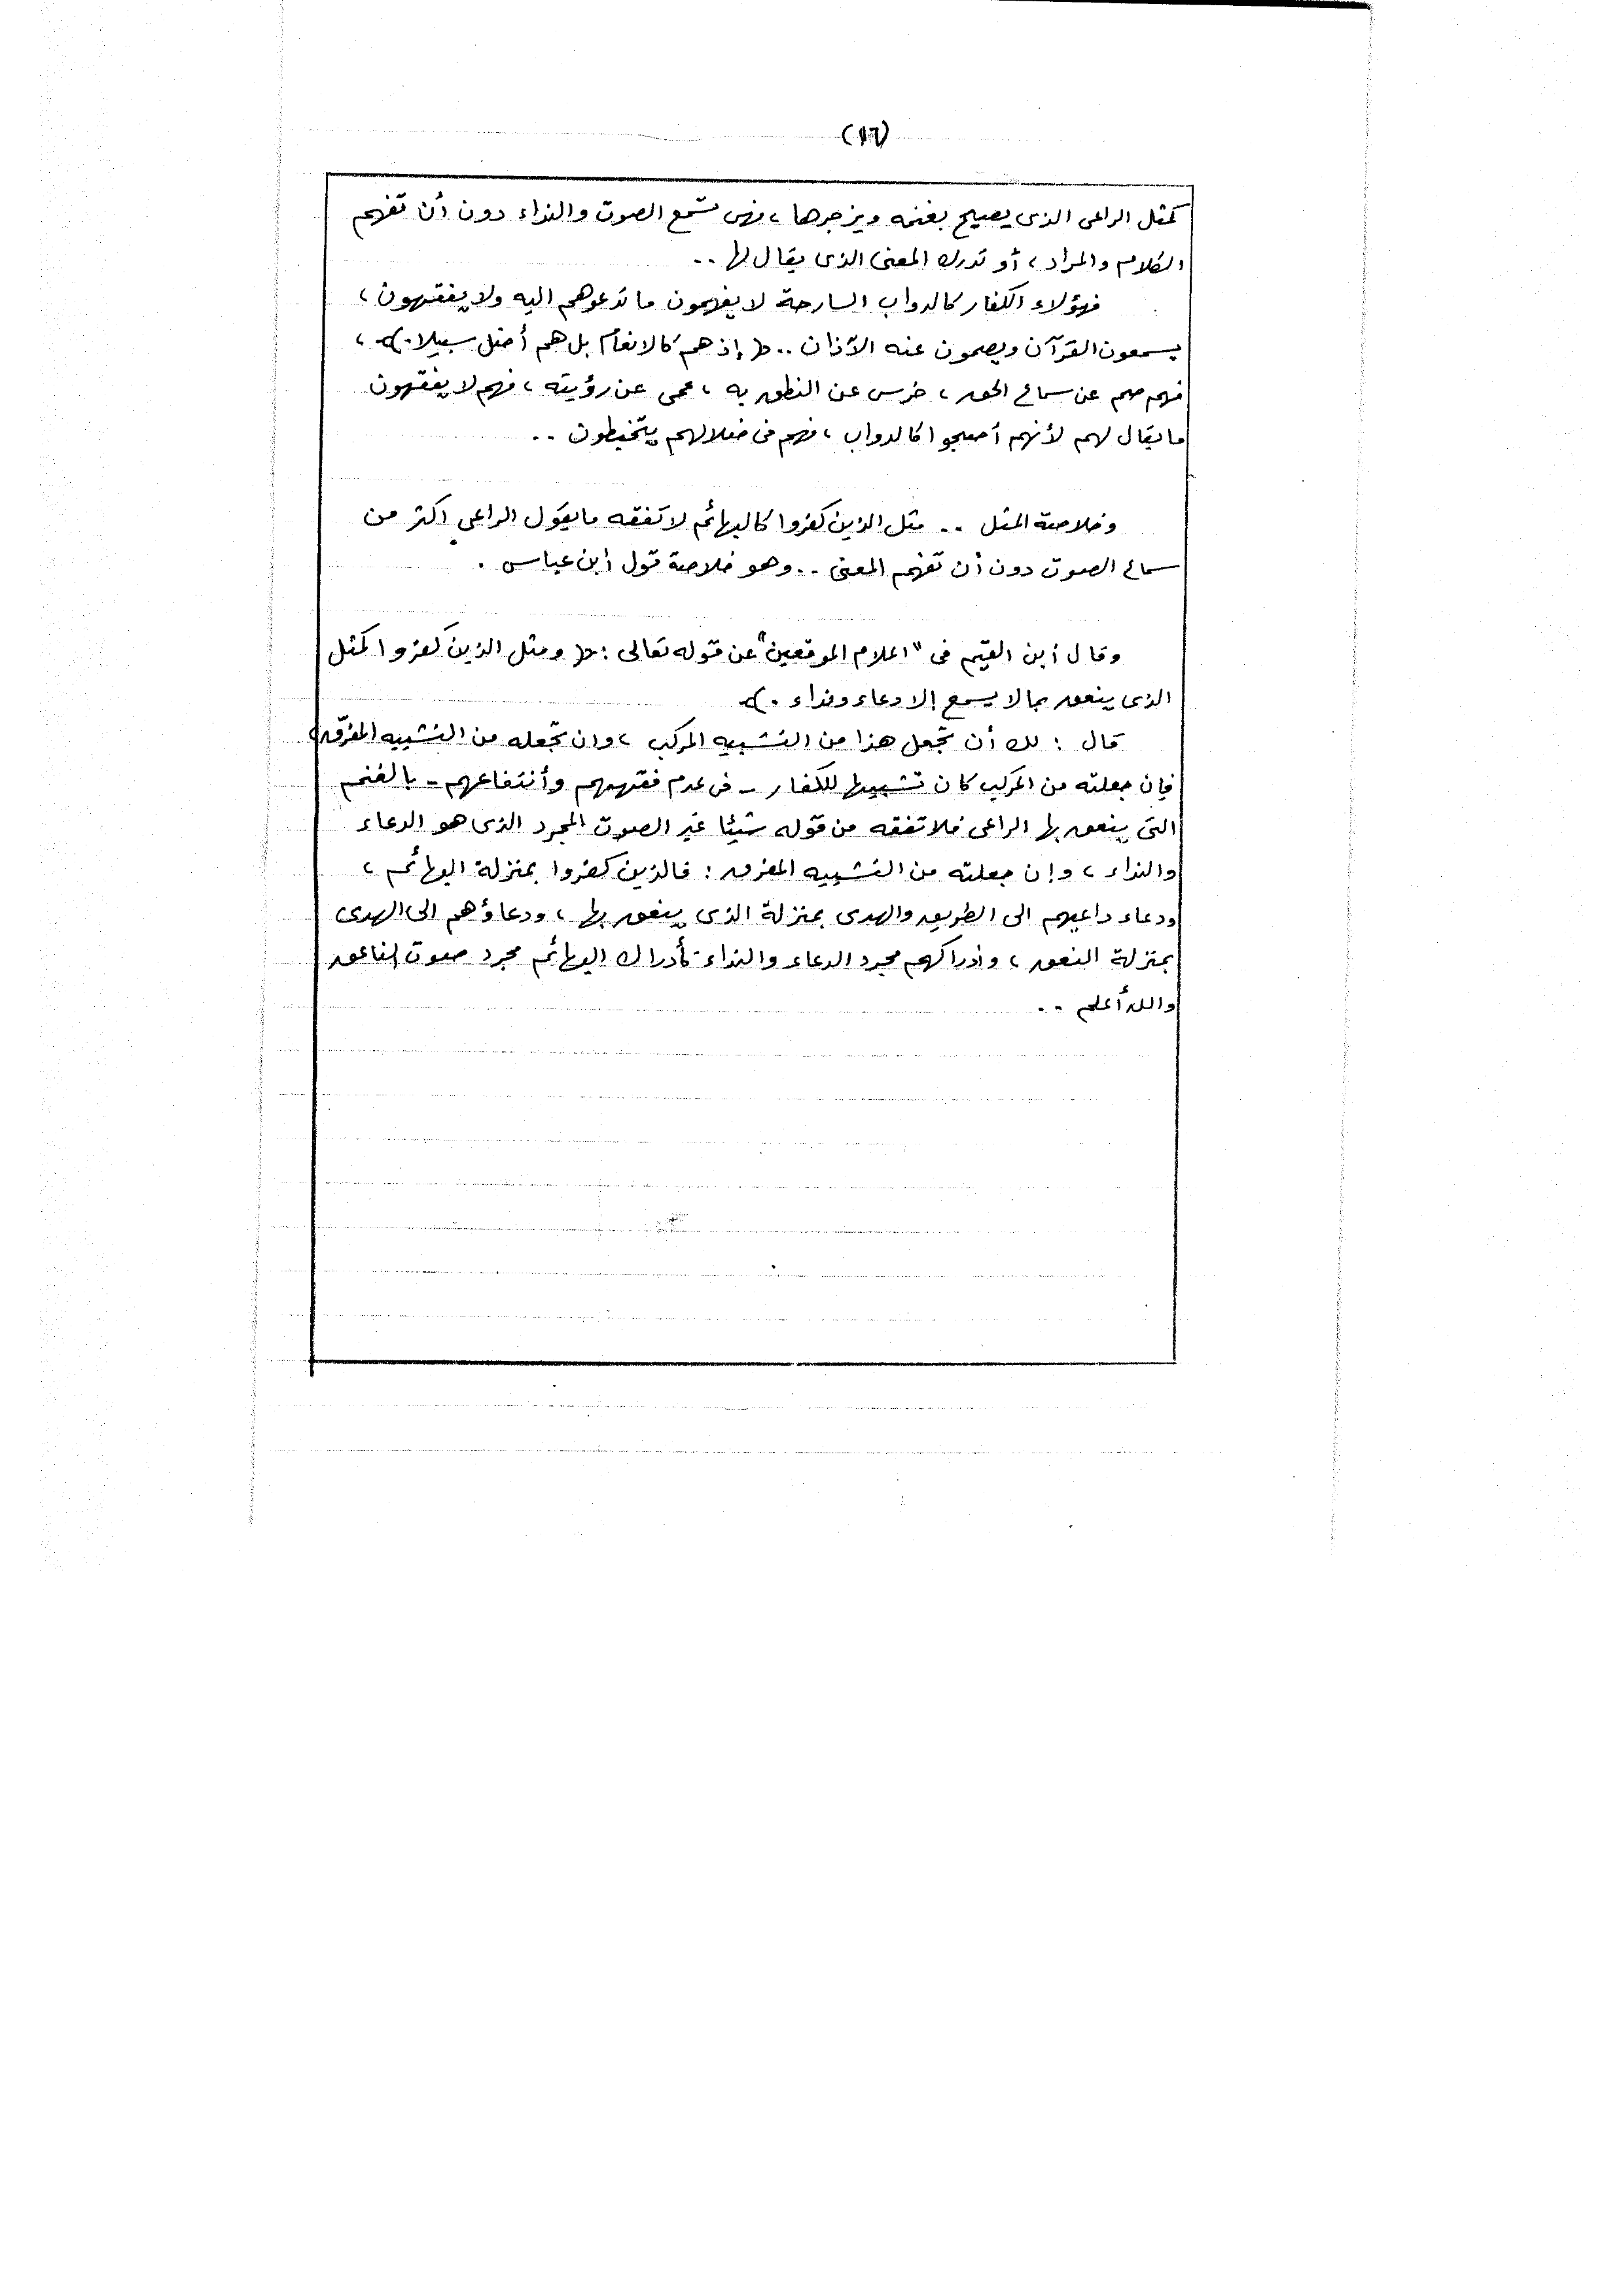 (١٦)
كمثل الراعى الذى يصيح بغنمه ويزجرها ، فهى تسمع الصوت والنداء دون أن تفهم
الكلام والمراد ، أو تدرك المعنى الذى يقال لها ..
فهؤلاء الكفار كالدواب السارحة لا يفهمون ما تدعوهم اليه ولا يفقهون ،
يسمعون القرآن ويصمون عنه الآذان .. ﴿ إذ هم كالانعام بل هم أضل سبيلا . ﴾ ،
فهم صم عن سماع الحق ، خرس عن النطق به ، عمى عن رؤيته ، فهم لا يفقهون
ما يقال لهم لأنهم أصبحوا كالدواب ، فهم فى ضلالهم يتخبطون ..
وخلاصة المثل .. مثل الذين كفروا كالبهائم لا تفقه ما يقول الراعى اكثر من
سماع الصوت دون أن تفهم المعنى .. وهو خلاصة قول أبن عباس .
وقال أبن القيم فى " اعلام الموقعين " عن قوله تعالى : ﴿ ومثل الذين كفروا كمثل
الذى ينعق بما لا يسمع إلا دعاء ونداء . ﴾
قال : لك أن تجعل هذا من التشبيه المركب ، وان تجعله من التشبيه المفرّق ،
فإن جعلته من المركب كان تشبيها للكفار - فى عدم فقههم وأنتفاعهم - بالغنم
التى ينعق بها الراعى فلا تفقه من قوله شيئا غير الصوت المجرد الذى هو الدعاء
والنداء ، وإن جعلته من التشبيه المفرق : فالذين كفروا بمنزلة البهائم ،
ودعاء داعيهم الى الطريق والهدى بمنزلة الذى ينعق بها ، ودعاؤهم الى الهدى
بمنزلة النعق ، وإدراكهم مجرد الدعاء والنداء كأدراك البهائم مجرد صوت الناعق
والله أعلم ..